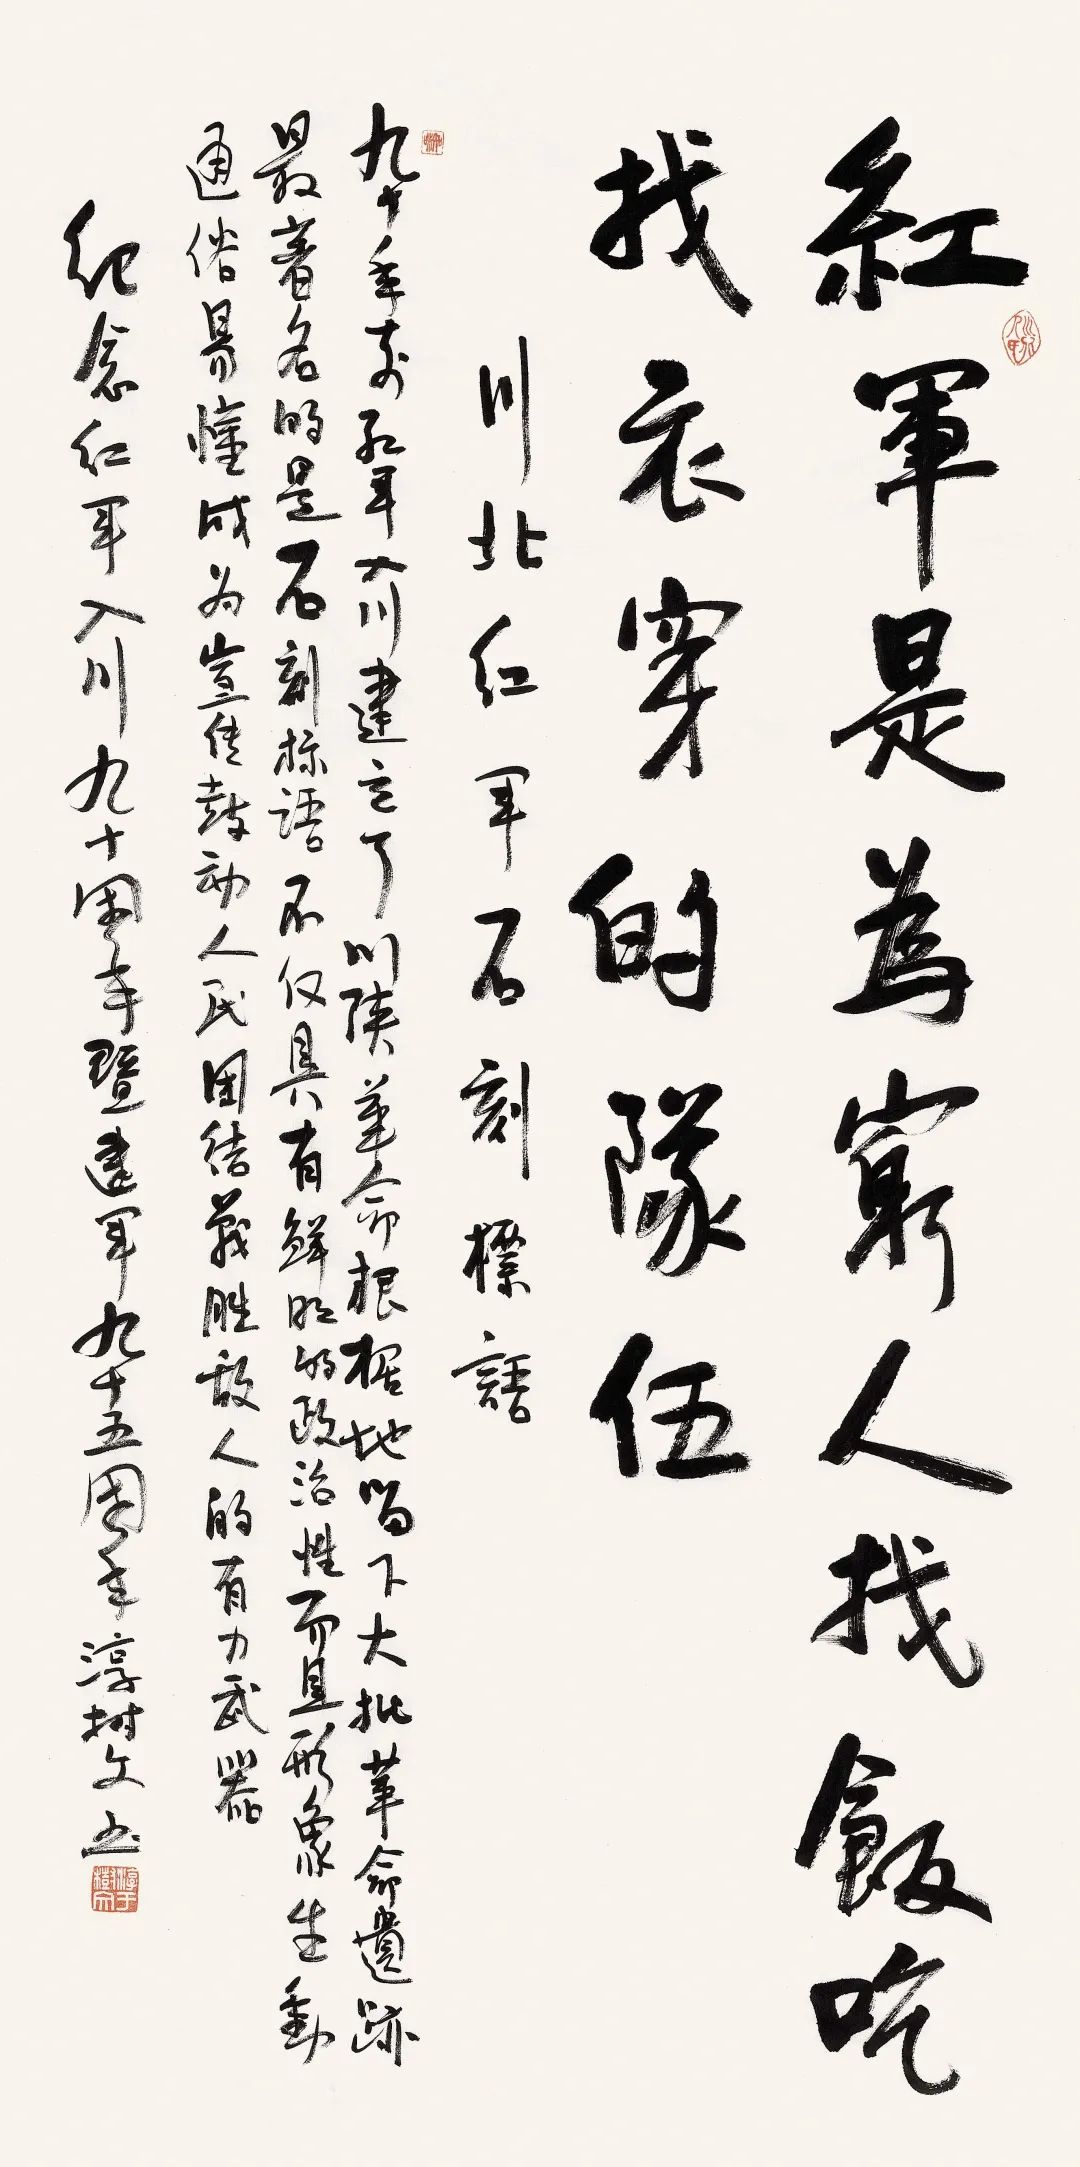 紅軍是為窮人找飯吃
找衣穿的隊伍
川北红軍石刻標語
九十年前红军入川建立了川陕革命根据地留下大批革命遗跡
最著名的是石刻标语不仅具有鲜明的政治性而且形象生動
通俗易懂成为宣传鼓动人民团结战胜敌人的有力武器
纪念红军入川九十周年暨建军九十五周年淳树文书